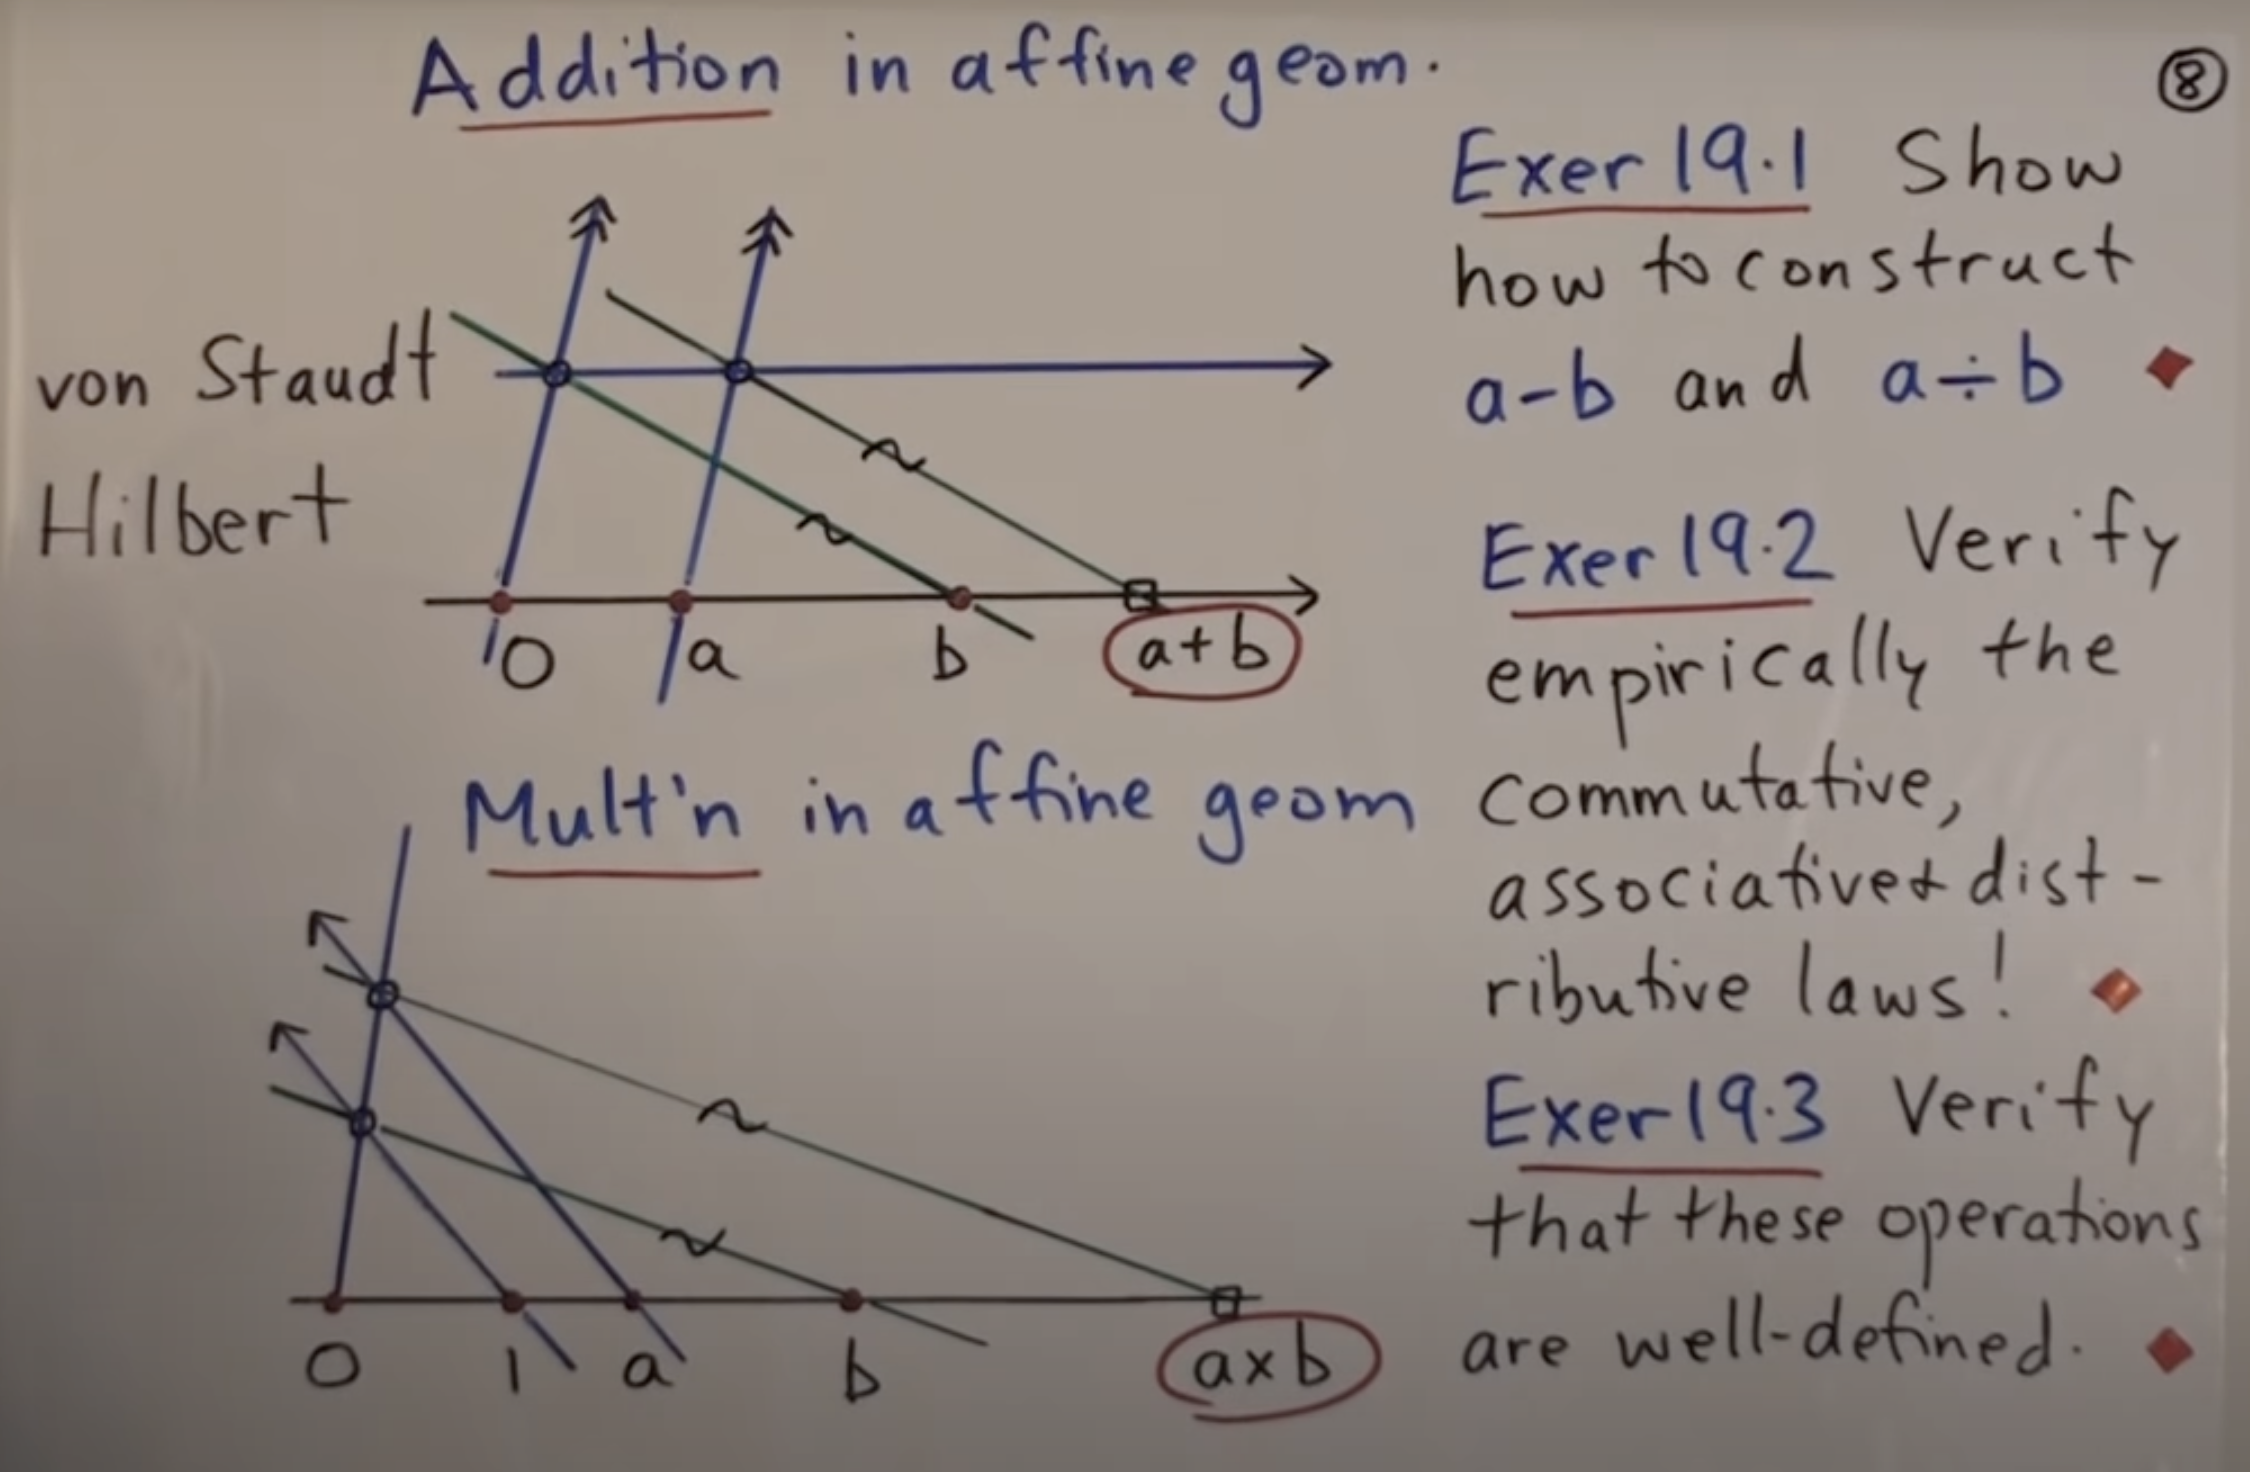 Addition in affine geom.
8
von Staudt
Hilbert
~
~
0 a b a+b
Mult'n in affine geom
~
~
0 1 a b a×b
Exer 19.1 Show
how to construct
a-b and a÷b
Exer 19.2 Verify
empirically the
commutative,
associative + dist-
ributive laws!
Exer 19.3 Verify
that these operations
are well-defined.